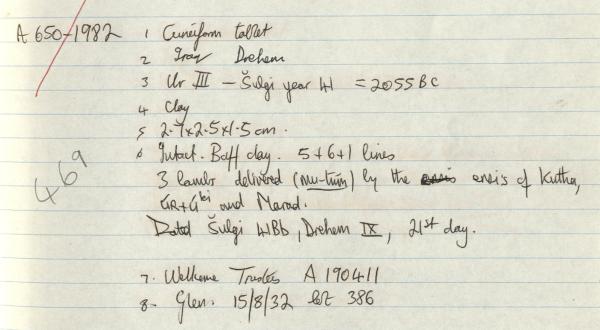 A 650-1982 1 Cuneiform tablet
2 Iraq Drehem
3 Ur III – Šulgi year 41 = 2055 BC
4 Clay
5 2.7 x 2.5 x 1.5 cm.
6 Intact. Buff clay. 5+6+1 lines
3 lambs delivered (mu-túm) by the ensis of Kutha,
and Marad.
Dated Šulgi 41Bb, Drehem IX, 21st day.
469
7. Wellcome Trustees A 190411
8. Glen. 15/8/32 lot 386